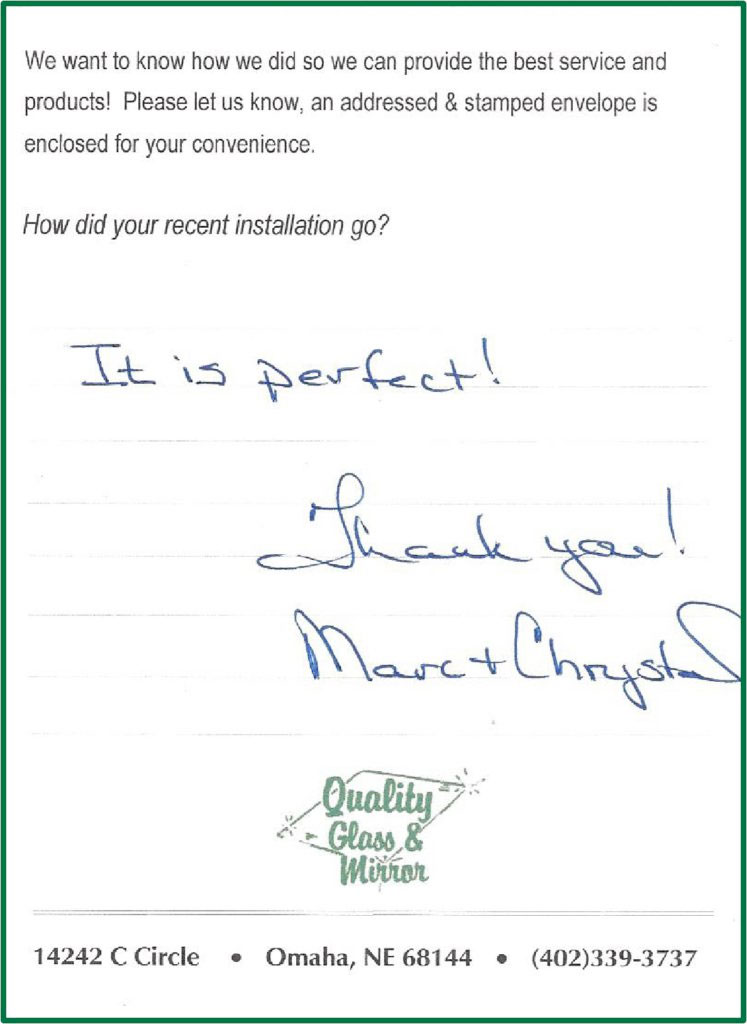 We want to know how we did so we can provide the best service and
products! Please let us know, an addressed & stamped envelope is
enclosed for your convenience.
How did your recent installation go?
It is perfect!
Thank you!
Marc + Chrystal
Quality
Glass &
Mirror
14242 C Circle • Omaha, NE 68144 • (402)339-3737